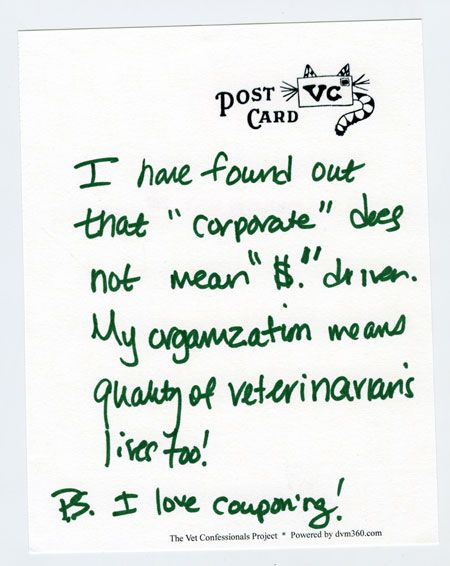 POST
CARD
VC
I have found out
that "corporate" does
not mean "$." driven.
My organization means
quality of veterinarian's
lives too!
P.S. I love couponing!
The Vet Confessionals Project * Powered by dvm360.com